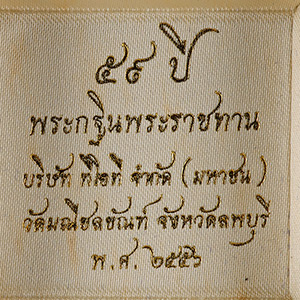 ๕๙ ปี
พระกฐินพระราชทาน
บริษัท ทีโอที จำกัด ( มหาชน )
วัดมณีชลขัณฑ์ จังหวัดลพบุรี
พ.ศ. ๒๕๕๖